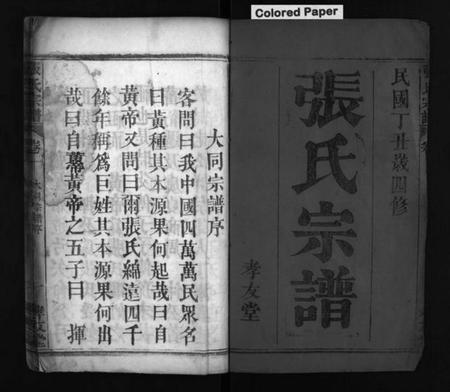 Colored Paper
民國丁丑歲四修
張氏宗譜
孝友堂
大同宗譜序
客問曰我中國四萬萬民眾名
曰黃種其本源果何起哉曰自
黃帝又問曰爾張氏綿遠四千
餘年稱為巨姓其本源果何出
哉曰自黃帝之五子曰 揮
張氏宗譜
卷
大同宗譜序
孝友堂